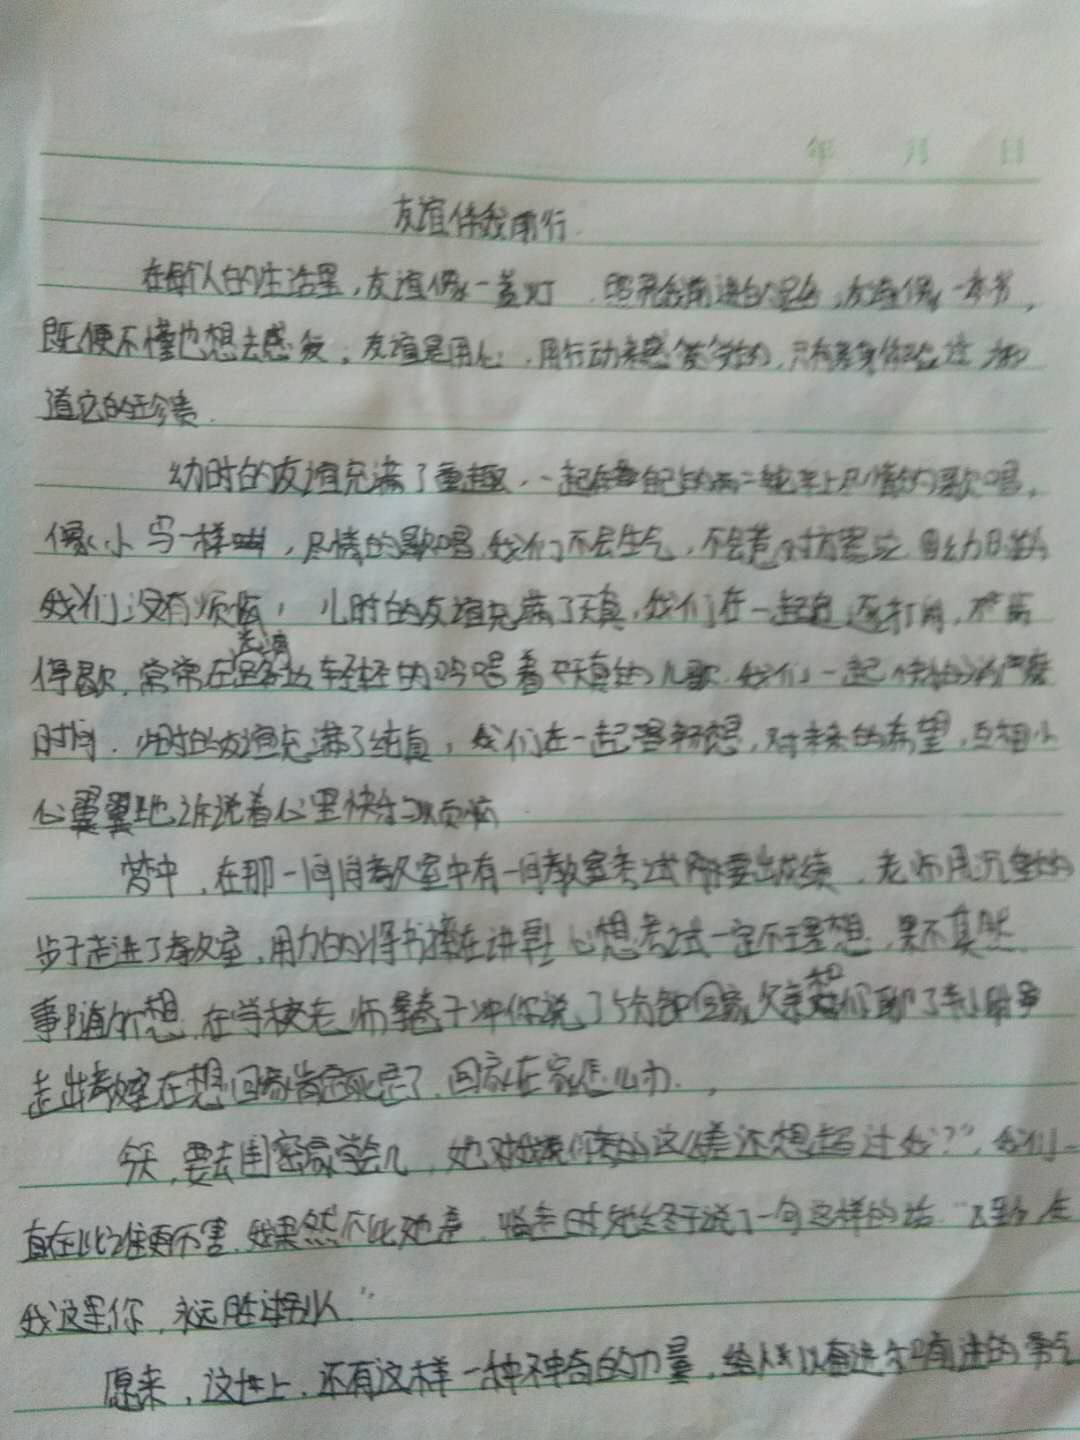 年 月 日
友谊伴我前行
在每个人的生活里，友谊像一盏灯，照亮我前进的道路，友谊像一本书，
既便不懂也想去感受，友谊是用心，用行动来感受的，只有亲身体验过才知
道它的珍贵
幼时的友谊充满了童趣，一起在自己的两二轮车上尽情的歌唱，
像小鸟一样，尽情的歌唱，我们不会生气，不会惹对方
我们没有烦恼，儿时的友谊充满了天真，我们在一起追逐打闹，不
停歇，常常在走道边轻轻的吟唱着天真的儿歌，我们一起
时间，的友谊充满了纯真，我们在一起畅想，对未来的希望，互相小
心翼翼地诉说着心里快乐与烦恼
梦中，在那一间间教室中有一间教室考试刚要出成绩，老师用沉重的
步子走进了教室，用力的将书摔在讲桌上，心想考试一定不理想，果不其然
事随你想，在学校老师拿卷子冲你说了5分钟回家父亲和你聊了半小时
走出教室在想回家肯定死定了，回家在家怎么办，
今天，要去闺蜜家学会儿，她对我说你考的这么差还想超过我？”，我们一
直在比谁更厉害，我果然不比她差，临走时她终于说了一句这样的话，“
我这里你，永远胜过别人”
原来，这世上，还有这样一种神奇的力量，给人以奋进和前进的勇气